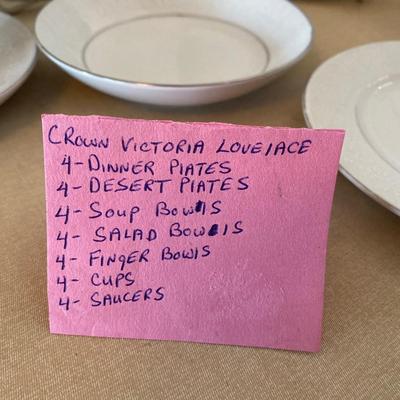 CROWN VICTORIA LOVElACE
4-DINNER PlATES
4-DESERT PlATES
4-SOUP BOWlS
4- SALAD BOWlS
4- FINGER BOWlS
4- CUPS
4- SAUCERS